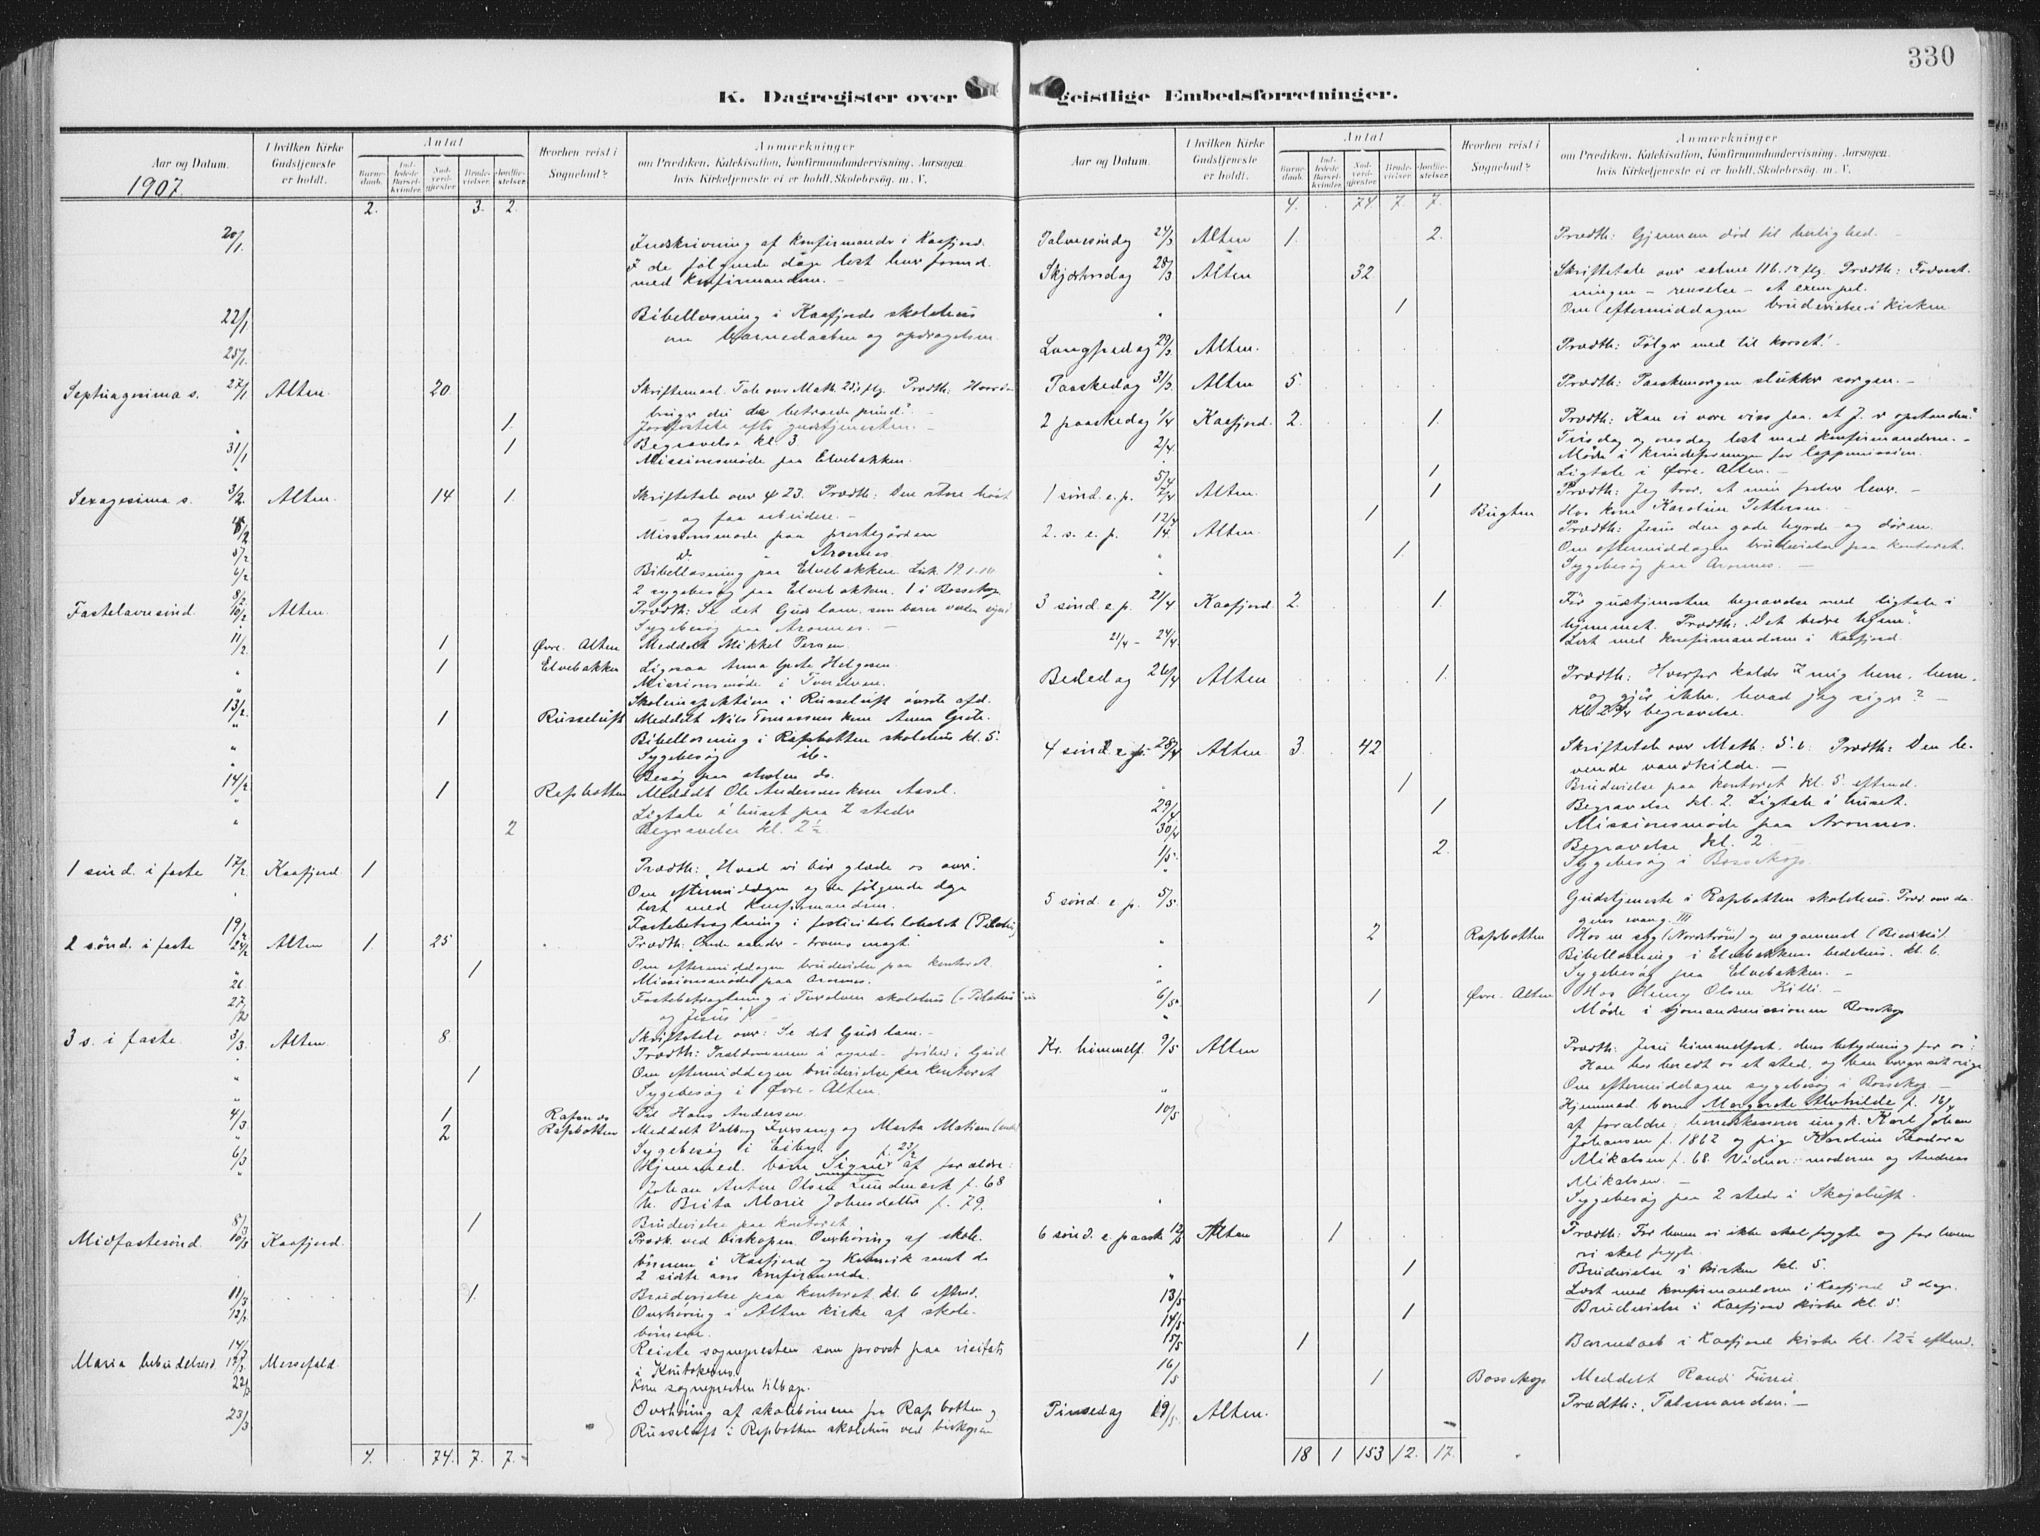 330
K. Dagregister over geistlige Embedsforretninger.
Aar og Datum. 1907
I hvilken Kirke Gudstjeneste er holdt.
Antal
Barnedaab. Indledede Barselkvinder. Nadverdgjester Brudevielser. Jordfæstelser.
Hvorhen reist i Sognebud?
Anmærkninger
om Prædiken, Katekisation, Konfirmandundervisning, Aarsagen, hvis Kirketjeneste ei er holdt, Skolebesøg, m. V.
2. 3. 2.
20/1. Indskrivning af konfirmander i Kaafjord.
I de følgende dage læst hver formd.
med konfirmanderne. -
22/1 Bibellæsning i Kaafjords skolehus
25/1. om barnedaaben og opdragelsen.
Septuagesima s. 27/1 Alten. 20. Skriftemaal. Tale over Math. Prædth:
bruger du de betroede pund". -
1. Jordfæstelse efter gudstjenesten. -
31/1 1 Begravelse kl 3
Missionsmøde paa Elvebakken.
Sexagesima s. 3/2. Alten. 14 1. Skriftetale over ψ 23. Prædth: Den store høst
- og faa arbeidere. -
Missionsmøde paa prestegården
5/2 Aronnes.
6/2 Bibellæsning paa Elvebakken. Luk. 19.1-10
8/2 2 sygebesøg paa Elvebakken. 1 i Bossekop
Fastelavnssind. 10/2 Alten. Prædth: Se det Guds lam, som bærer verdens synd
Sygebesøg paa Aronnes. -
11/2 1 Øvre-Alten Meddelt Mikkel Persen.
1 Elvebakken Ligesaa Anna Grete Helgesen.
Missionsmøde i Tverelven.
Skoleinspektion i Russeluft øvste afd.
13/2. 1 Russeluft Meddelt Nils Tomassens kone Anna Grete.
Bibellæsning i Rafsbotten skolehus kl. 5.
Sygebesøg ib.
Besøg paa skolen ds.
14/2 1 Rafsbotten Meddelt Ole Andersens kone Assel.
Ligtale i huset paa 2 steder
2 Begravelse kl. 2½
1 sind. i faste 17/2. Kaafjord 1 Prædth: Hvad vi bør glæde os over".
Om eftermiddagen og de følgende dage
læst med konfirmanderne.
19/2 Fastebetragtning i festivitetslokalet (Pilatus)
2 sønd. i faste 24/2 Alten 1 25 Prædth: Onde aander - troens magt.
1 Om eftermiddagen brudevielse paa kontoret.
26 Missionsmøde paa Aronnes.
27/2 Fastebetragtning i Tverelven skolehus („Pilatus
og Jesus")
3 s. i faste. 3/3. Alten. 8. Skriftetale over: Se det Guds lam. -
Prædth: Trældommen i synd - frihed i Gud
1 Om eftermiddagen brudevielse paa kontoret
Sygebesøg i Øvre-Alten.
4/3 1 Til Hans Andersen.
2 Rafsbotten Meddelt Valborg Iversen og Marta Matisen
6/3 Sygebesøg i Eiby. f. 22/2
Hjemmed. barn Signe af forældre:
Johan Anton Olsen Lundmark f. 68
h. Brita Marie Johnsdatter f. 79.
8/3 1 Brudevielse paa kontoret
Midfastesønd. 10/3 Kaafjord. Præk. ved biskopen. Overhøring af skole-
børnene i Kaafjord og Komsik samt de
2 sidste aars konfirmerede.
11/3 1. Brudevielse paa kontoret kl. 6 eftmd.
13/3 Overhøring i Alten kirke af skole-
børnene.
14/3 Reiste sognepresten som provst paa visitats
Maria bebudelsesd. 17/3 Messefald. i Koutokeino.
22/3 Kom sognepresten tilbage.
23/3 Overhøring af skolebørnene fra Rafsbotten og
Russeluft i Rafsbotten skolehus ved biskopen
4. 74. 7. 7. -
Aar og Datum.
I hvilken Kirke Gudstjeneste er holdt.
Antal
Barnedaab. Indledede Barselkvinder. Nadverdgjester Brudevielser. Jordfæstelser.
Hvorhen reist i Sognebud?
Anmærkninger
om Prædiken, Katekisation, Konfirmandundervisning, Aarsagen, hvis Kirketjeneste ei er holdt, Skolebesøg, m. V.
4. 74 7. 7.
Palmesøndag 24/3 Alten 1. 2. Prædth: Gjennem død til herlighed. -
Skjærtorsdag 28/3 Alten 32 Skriftetale over salme 116.12 flg. Prædth: Fodvask-
ningen - renselse - et exempel.
1 Om eftermiddagen brudevielse i kirken
Langfredag 29/3 Alten. Prædth: Følger med til korset!
Paaskedag 31/3 Alten 5. Prædth: Paaskemorgen slukker sorgen. -
2 paaskedag 1/4 Kaafjord. 2. 1. Prædth: Kan vi være viss paa, at J. er opstanden?
2/4. Tirsdag og onsdag læst med konfirmanderne. -
Møde i kvindeforeningen for lappemission.
5/4 1 Ligtale i Øvre-Alten. -
1 sind. e. p. 7/4 Alten. 1 Prædth: Jeg tror, at min frelser lever. -
12/4 1 Bugten Hos kone Karoline Pettersen -
2. s. e. p. 14. Alten. Prædth: Jesus den gode hyrde og døren.
1. Om eftermiddagen brudevielse paa kontoret.
Sygebesøg paa Aronnes. -
3 sind. e. p. 21/4 Kaafjord. 2. 1. Før gudstjenesten begravelse med ligtale i
hjemmet. Prædth: „Det bedre hjem."
21/4 - 24/4. Læst med konfirmanderne i Kaafjord.
Bededag 26/4 Alten 1. Prædth: Hvorfor kalder I mig herre, herre,
og gjør ikke, hvad jeg siger? -
begravelse.
4 sind. e. p. 28/4 Alten 3. 42 Skriftetale over Math: 5.6. Prædth: Den le-
vende vandkilde. -
1 Brudevielse paa kontoret kl. 5. eftmd.
29/4 1 Begravelse kl. 2. Ligtale i huset.
30/4 Missionsmøde paa Aronnes.
1/5. 2. Begravelse kl. 2
Sygebesøg i Bossekop.
5 sønd. e. p. 5/5. Gudstjeneste i Rafsbotten skolehus. Præd. over da-
gens evang. III
2 Rafsbotten Hos en syg (Nordstrøm) og en gammel
Bibellæsning i Elvebakkens bedehus. kl. 6.
Sygebesøg paa Elvebakken. -
6/5 1 Øvre-Alten Hos Olsen Killi. -
Møde i sjømandsmissionen Bossekop
Kr. himmelf. 9/5 Alten Prædth: Jesu himmelfart, dens betydning for os:
Han har beredt os et sted, og han
Om eftermiddagen sygebesøg i Bossekop -
10/5 Hjemmed. barn Margarete Mathilde f. 16/4
af forældre: ungk. Karl Johan
Johansen f. 1862 og pige Karoline Teodora
Mikalsen f. 68. Vidner: moderen og Andreas
Mikalsen. -
Sygebesøg paa 2 steder i Skojeluft.
6 sønd. e. paaske 12/5 Alten 1 Prædth: For hvem vi ikke skal frygte og for hvem
vi skal frygte.
1 Brudevielse i kirken kl. 5.
13/5 Læst med konfirmanderne i Kaafjord 3 dage.
14/5 1 Brudevielse i Kaafjord kirke kl. 5.
15/5 1 Barnedaab i Kaafjord kirke kl. 12½ eftmd.
16/5 1 Bossekop Meddelt Randi
Pinsedag 19/5. Alten. Prædth: „Talsmanden." -
18 1 153 12. 17.